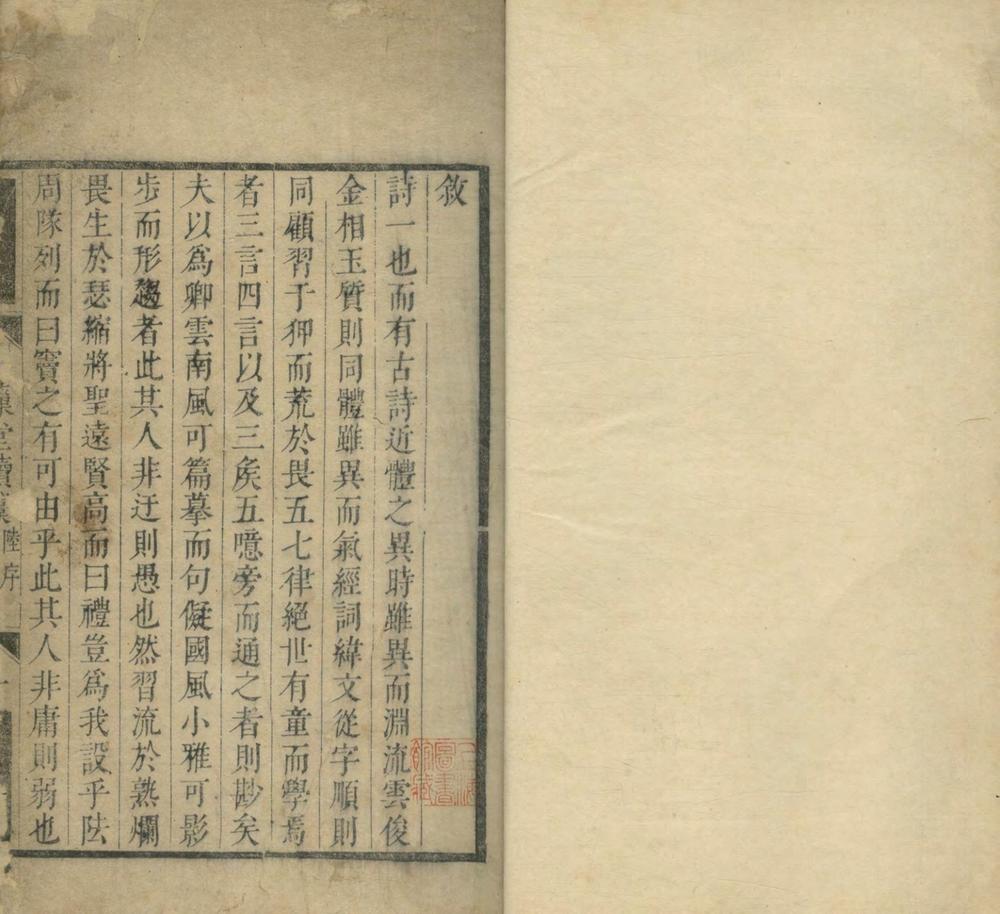 敘
詩一也而有古詩近體之異時雖異而淵流雲俊
金相玉質則同體雖異而氣經詞緯文從字順則
同顧習于狎而荒於畏五七律絕世有童而學焉
者三言四言以及三矦五噫旁而通之者則尠矣
夫以爲卿雲南風可篇摹而句儗國風小雅可影
步而形趨者此其人非迂則愚也然習流於熟爛
畏生於瑟縮將聖遠賢高而曰禮豈爲我設乎法
周隊列而曰竇之有可由乎此其人非庸則弱也
堂讀 陸序
圖書館藏